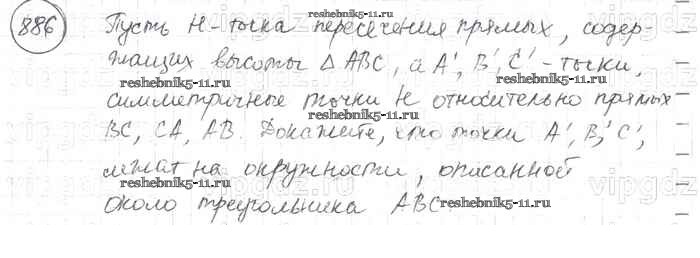 886 Пусть H - точка пересечения прямых, содер-
жащих высоты △ ABC, а A', B', C' - точки,
симметричные точки H относительно прямых
BC, CA, AB. Докажите, что точки A', B', C',
лежат на окружности, описанной
около треугольника ABC.
reshebnik5-11.ru
reshebnik5-11.ru
reshebnik5-11.ru
reshebnik5-11.ru
reshebnik5-11.ru
reshebnik5-11.ru
vipgdz
vipgdz
vipgdz